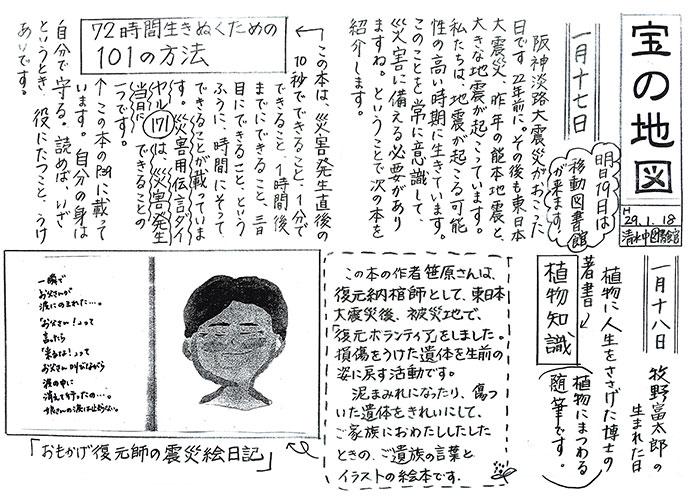 宝の地図
H
29.1.18
清水中図書館
明日19日は
移動図書館
が来ます。
一月十七日
阪神淡路大震災がおこった
日です。22年前に。その後も東日本
大震災、昨年の熊本地震と、
大きな地震が起こっています。
私たちは、地震が起こる可能
性の高い時期に生きています。
このことを常に意識して、
災害に備える必要があり
ますね。ということで次の本を
紹介します。
72時間生きぬくための
101の方法
この本は、災害発生直後の
10秒でできること、1分で
できること、1時間後、
までにできること、三日
目にできること、という
ふうに、時間にそって
できることが載っていま
す。災害用伝言ダイ
ヤル171は、災害発生
当日にできることの
一つです。
↑この本のP.に載って
います。自分の身は
自分で守る。読めば、いざ
というとき、役にたつこと、うけ
あいです。
一月十八日
牧野富太郎の
生まれた日
植物に人生をささげた博士の
著書↓
植物知識
植物にまつわる
随筆です。
この本の作者笹原さんは、
復元納棺師として、東日本
大震災後、被災地で、
「復元ボランティア」をしました。
損傷をうけた遺体を生前の
姿に戻す活動です。
泥まみれになったり、傷つ
いた遺体をきれいにして、
ご家族におわたししたした
ときの、ご遺族の言葉と
イラストの絵本です.
一瞬で
お父さんが
波にのまれた…。
「お父さん！」って
言ったら
「来るな！」って
お父さん叫びながら
波の中に
消えて行ったの…。
娘さんの涙は止まらない。
「おもかげ復元師の震災絵日記」